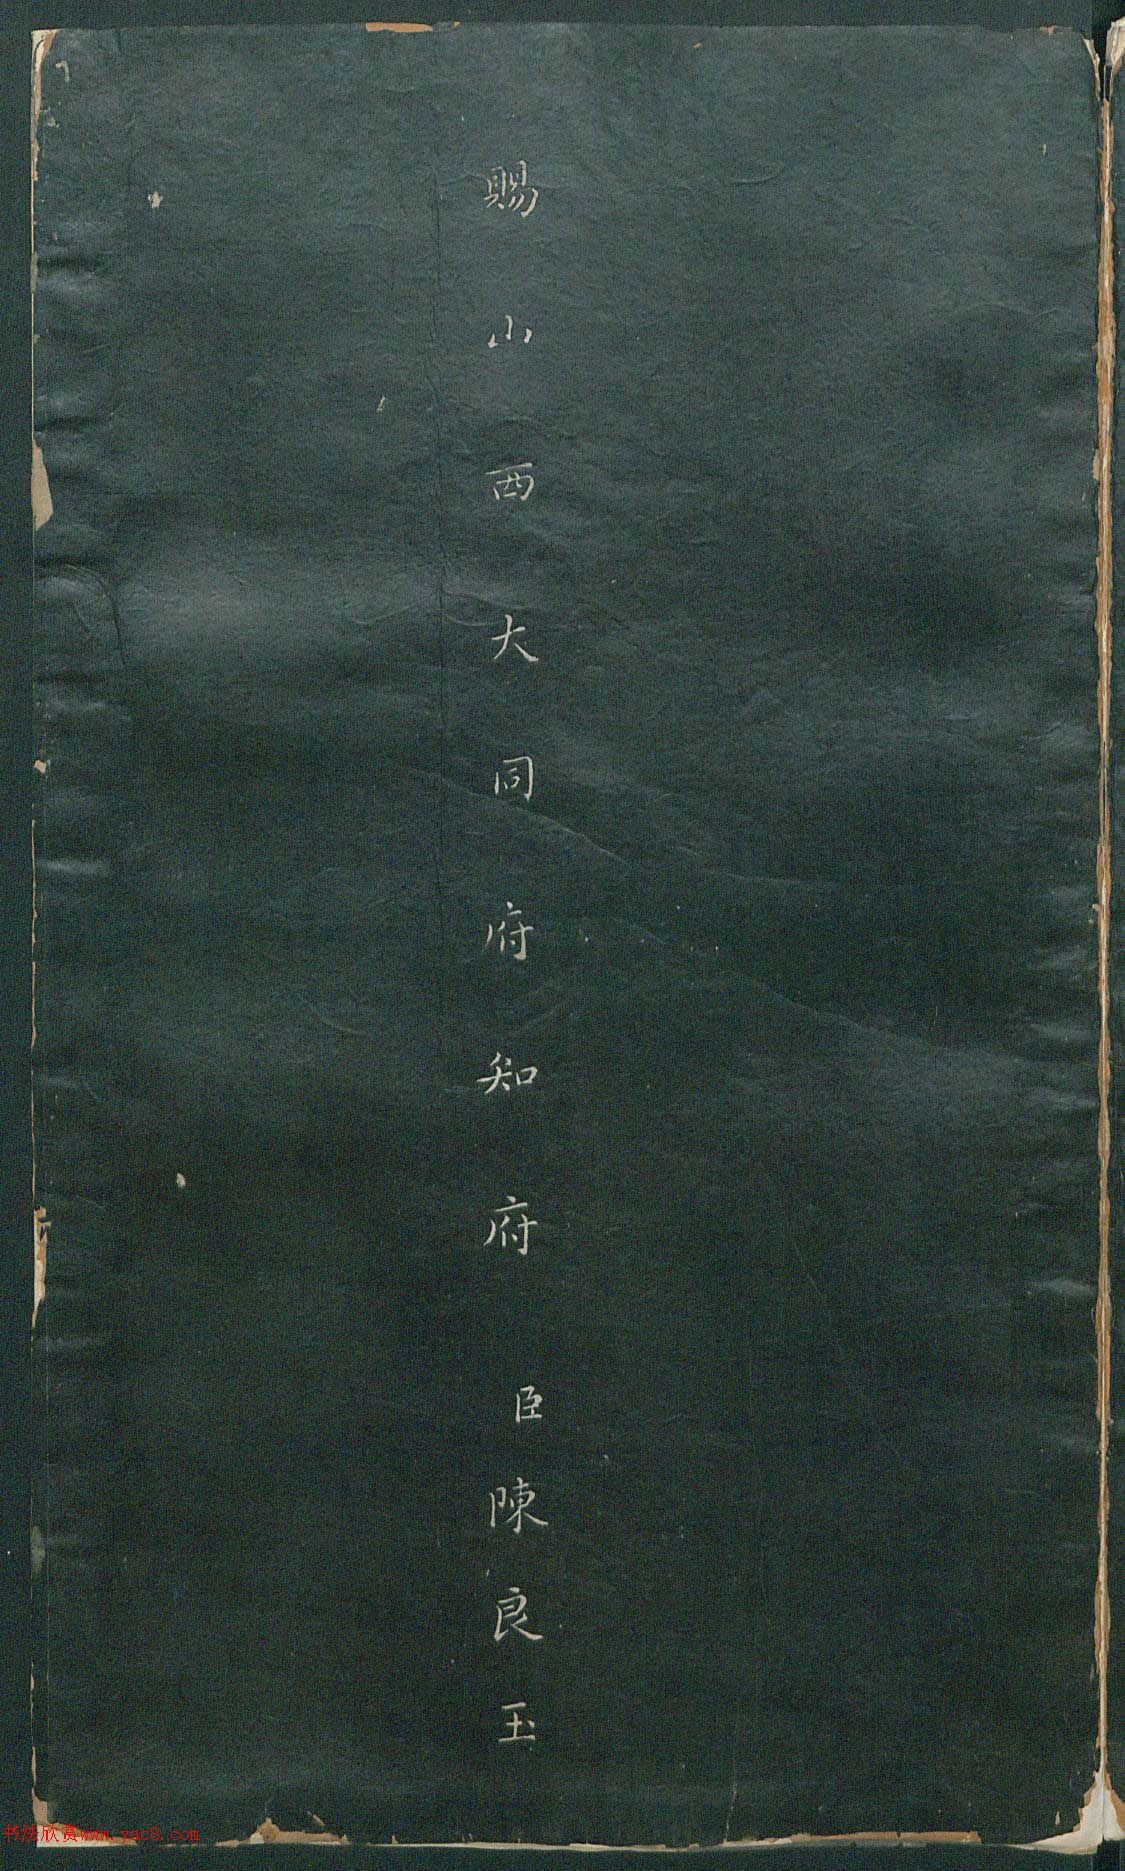 賜山西大同府知府臣陳良玉
书法欣赏www.yac8.com